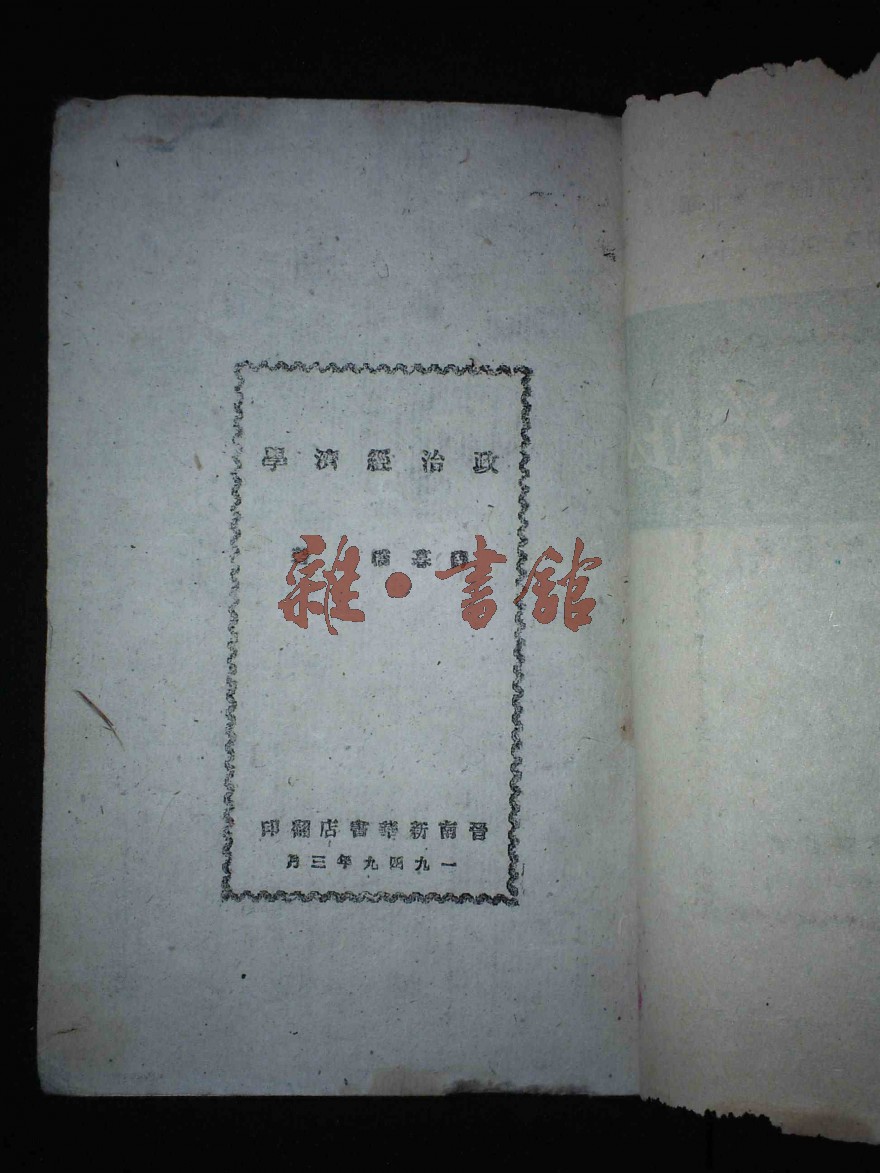 政治經濟學
薛暮橋 著
晉南新華書店翻印
一九四九年三月
雜·書館